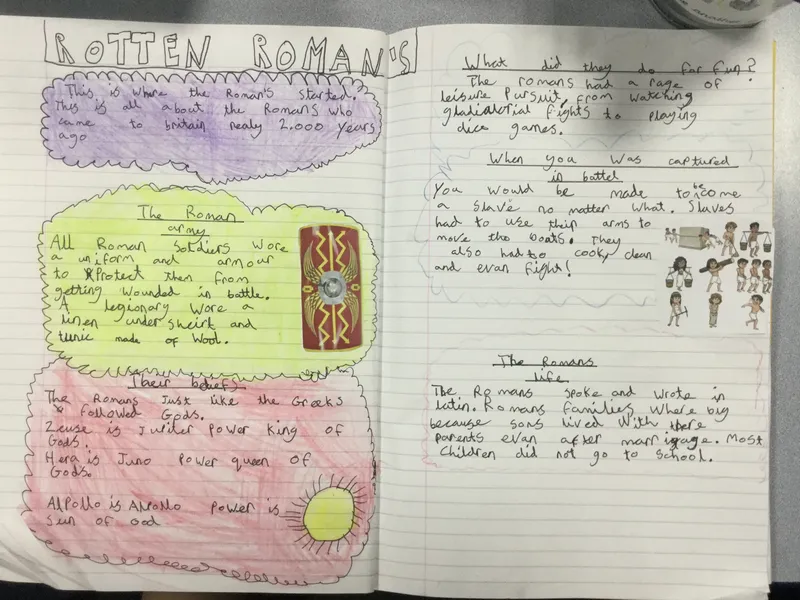 ROTTEN ROMAN'S
This is where the Roman's started.
This is all about the Romans who
came to britain nealy 2,000 years
ago
The Roman
army
All Roman Soldiers wore
a uniform and armour
to Protect then from
getting wounded in battle.
A legionary wore a
linen under sheirt and
tunic made of wool.
Their beliefs
The Romans Just like the Greeks
followed Gods.
Zeuse is Jupiter Power king of
Gods.
Hera is Juno power queen of
Gods.
AlPollo is AlPollo power is
Sun of God
What did they do for fun?
The romans had a rage of
leisure Pursuit, from watching
gladiatorial fights to playing
dice games.
When you was captured
in battel
You would be made to become
a Slave no matter what. Slaves
had to use their arms to
move the boats. They
also had to cook, clean
and evan fight!
The Romans
life
The Romans spoke and wrote in
latin. Romans families where big
because sons lived with there
parents evan after marrigage. Most
Children did not go to school.